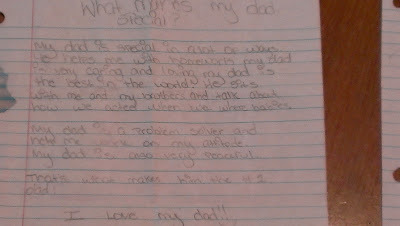 What Makes my dad
special?
My dad is special in alot of ways
He helps me with homework my dad
is very caring and loving my dad is
the best in the world! He sits
with me and my brother and talk about
how we acted when we where babies
My dad is a problem solver and
help me work on my attitude
My dad is also very peaceful
That's what makes him the #1
Dad!
I love my dad!!